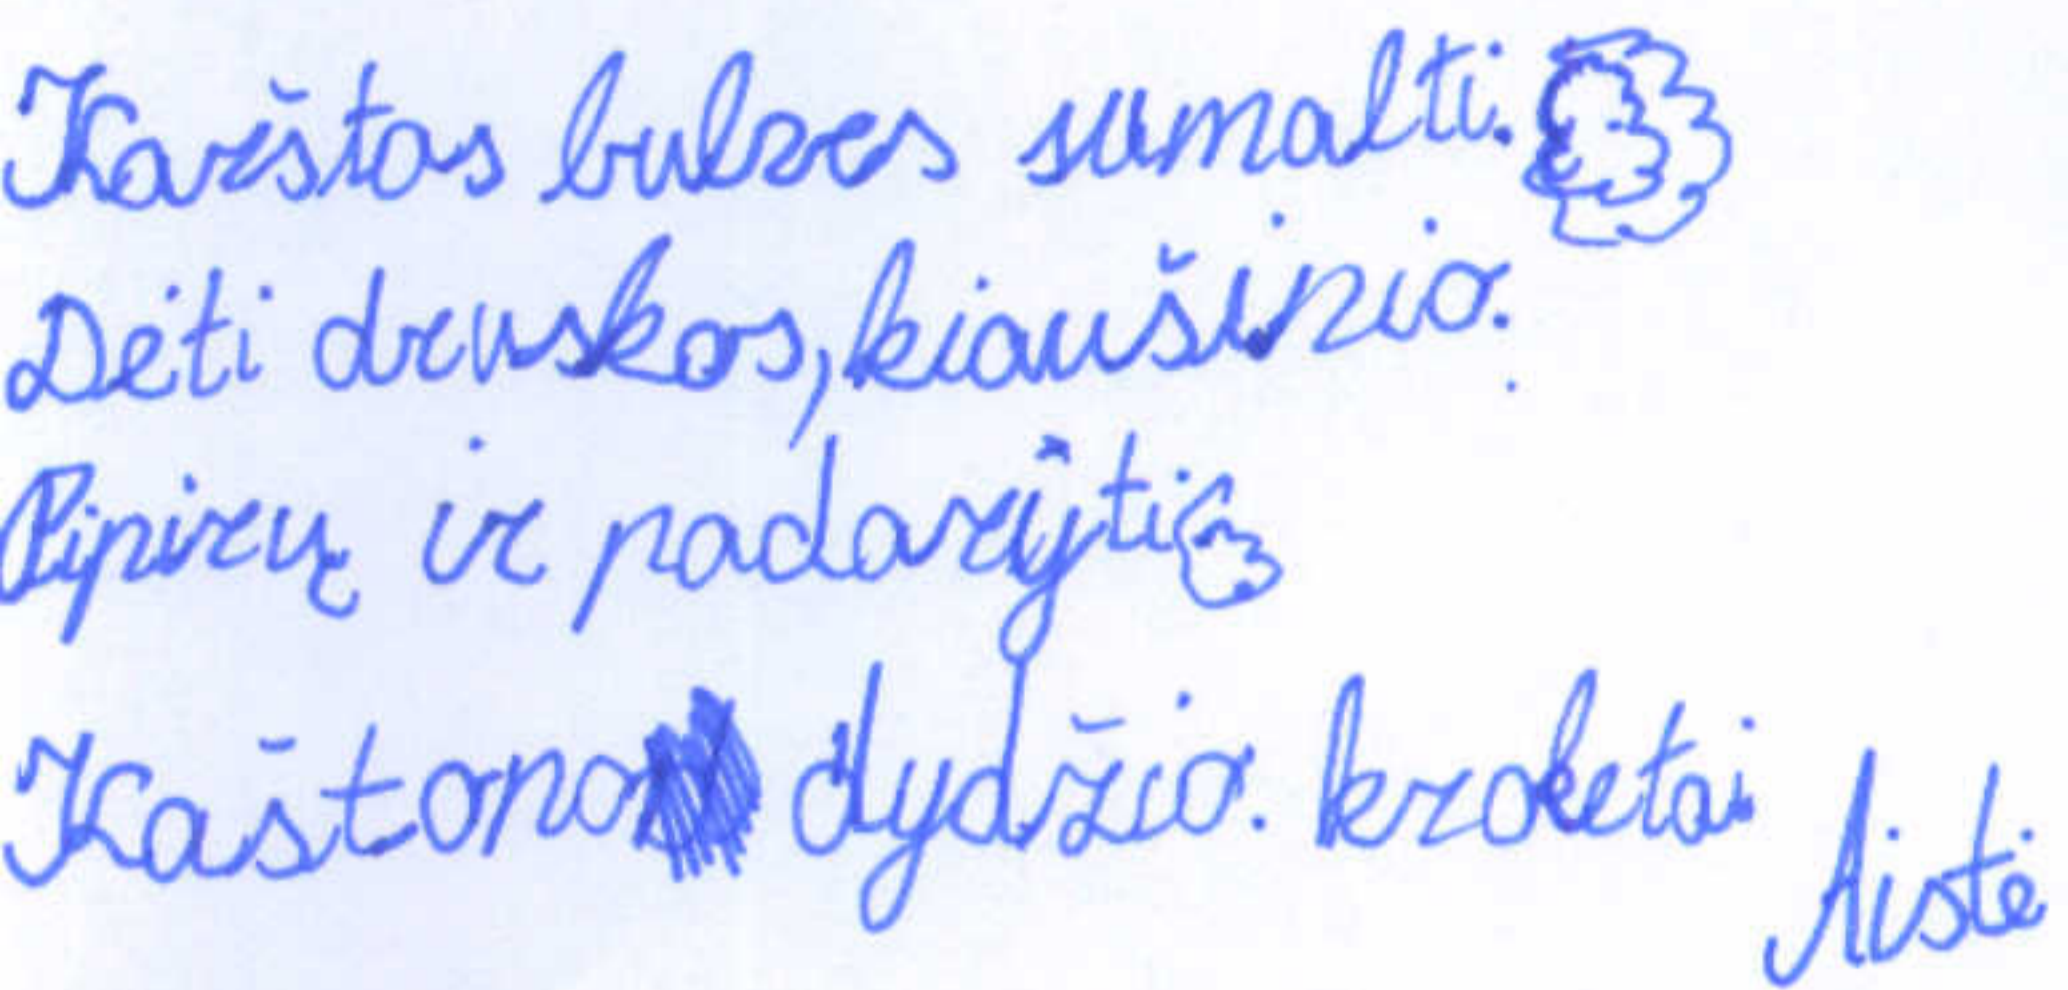 Karštas bulves sumalti.
Dėti druskos, kiaušinio.
Pipirų ir padaryti
Kaštono dydžio. kroketai
Aistė